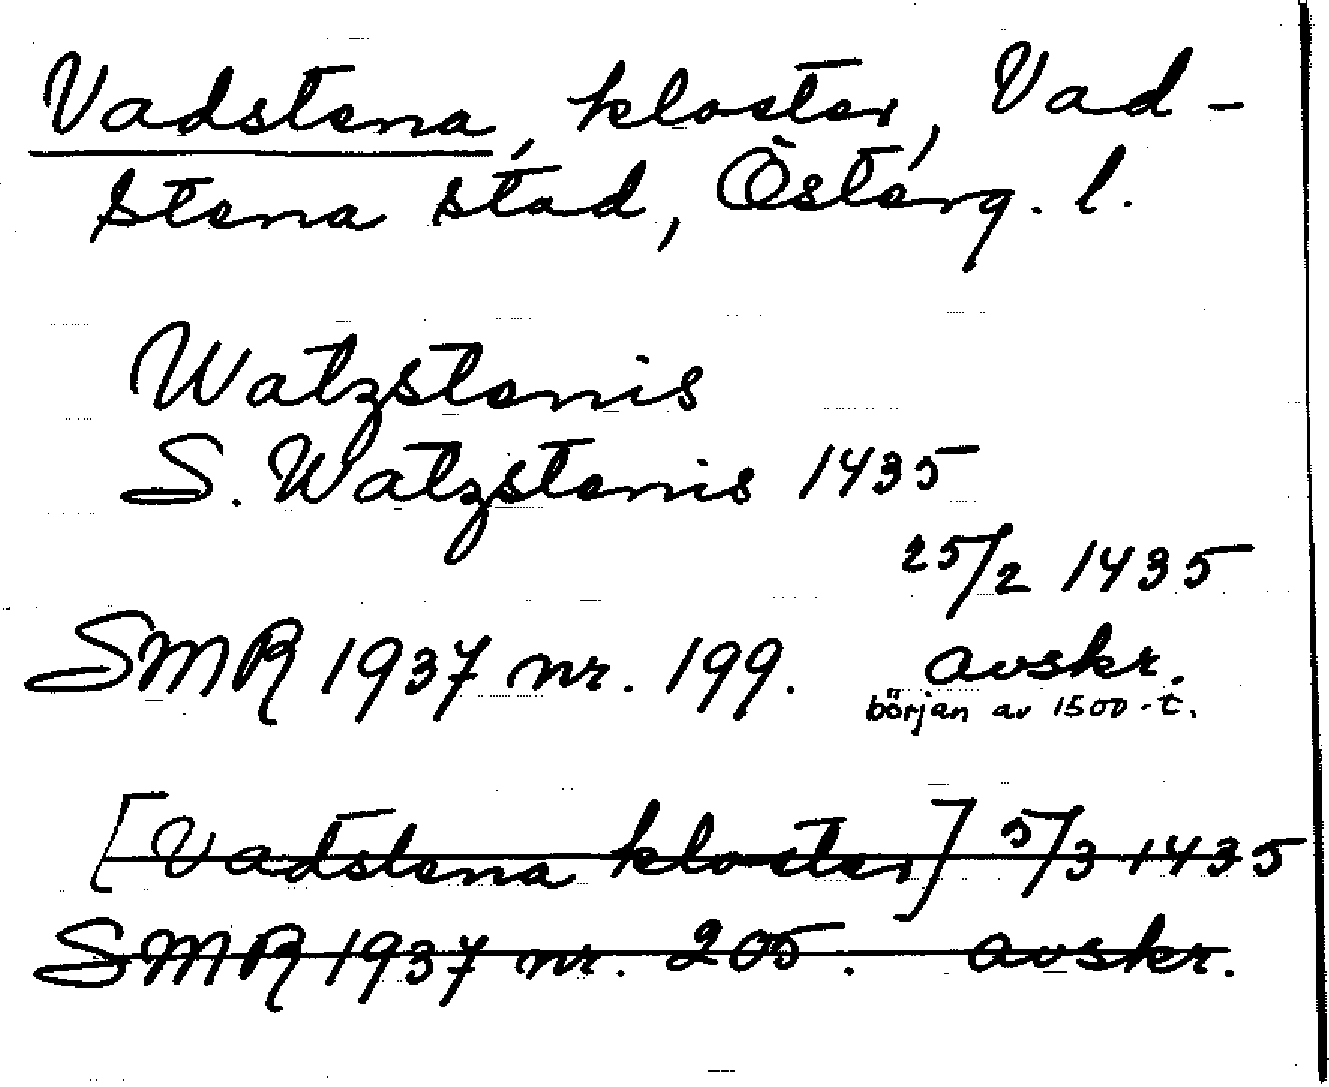 Vadstena, kloster, Vad-
stena stad, Österg. l.
Watzstenis
S. Watzstenis 1435
25/2 1435
SMR 1937 nr. 199. avskr.
början av 1500-t.
[Vadstena kloster] 5/3 1435
SMR 1937 nr. 205. avskr.